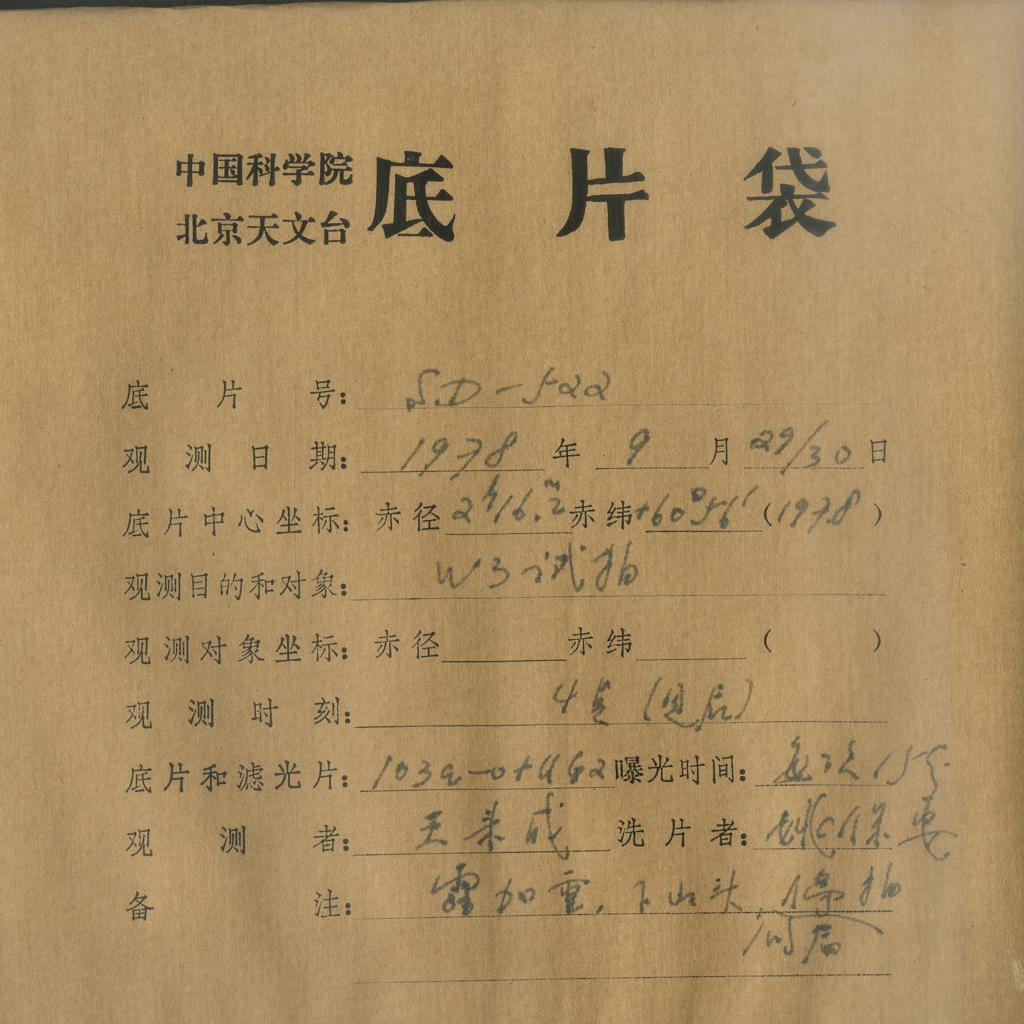 中国科学院
北京天文台
底片袋
底片号: S.D-522
观测日期: 1978年9月29/30日
底片中心坐标: 赤径 2ʰ16.ᵐ2 赤纬 +60°56′ (1978)
观测目的和对象: W3 试拍
观测对象坐标: 赤径 赤纬 ( )
观测时刻: 4
底片和滤光片: 103a-o+UG2 曝光时间: 每次15
观测者: 王来成 洗片者: 姚保安
备注: 雾加重,下山头,停拍